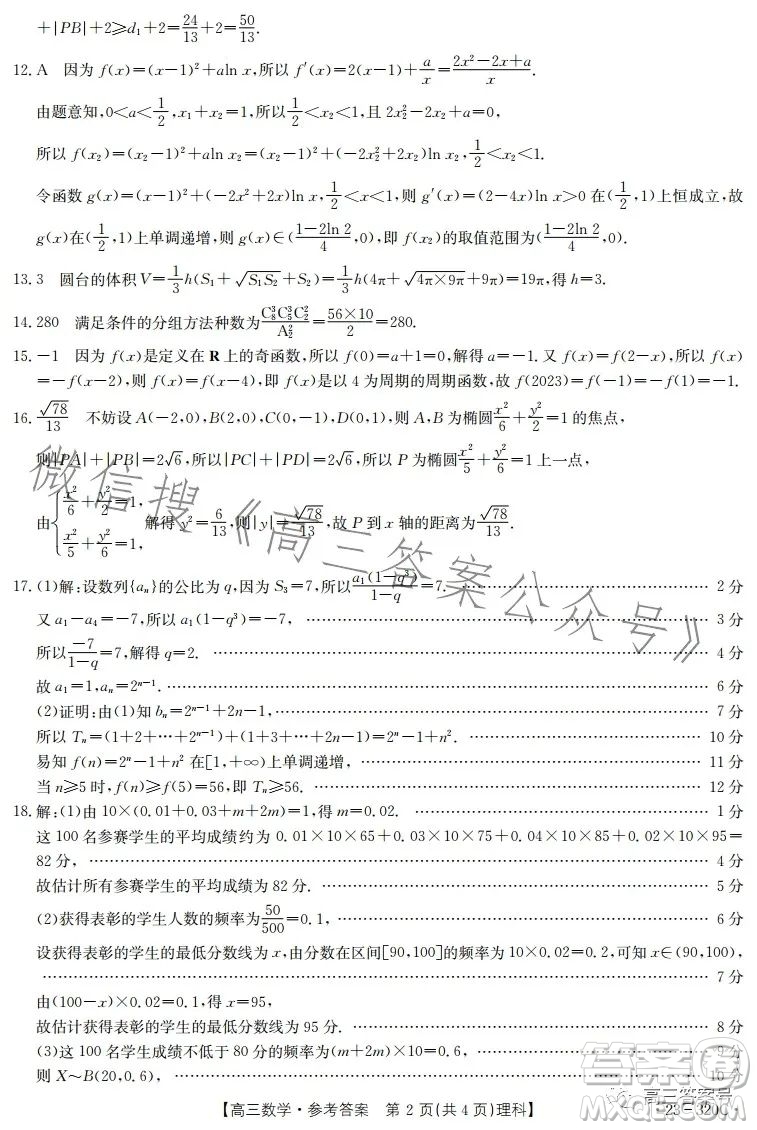 +|PB|+2≥d₁+2=24/13+2=50/13.
12. A 因为 f(x)=(x-1)²+aln x,所以 f′(x)=2(x-1)+a/x=(2x²-2x+a)/x.
由题意知,0<a<1/2,x₁+x₂=1,所以1/2<x₂<1,且 2x₂²-2x₂+a=0,
所以 f(x₂)=(x₂-1)²+aln x₂=(x₂-1)²+(-2x₂²+2x₂)ln x₂,1/2<x₂<1.
令函数 g(x)=(x-1)²+(-2x²+2x)ln x,1/2<x<1,则 g′(x)=(2-4x)ln x>0 在(1/2,1)上恒成立,故
g(x)在(1/2,1)上单调递增,则 g(x)∈((1-2ln 2)/4,0),即 f(x₂)的取值范围为((1-2ln 2)/4,0).
13. 3 圆台的体积 V=1/3h(S₁+√(S₁S₂)+S₂)=1/3h(4π+√(4π×9π)+9π)=19π,得 h=3.
14. 280 满足条件的分组方法种数为C₈³C₅³C₂²/A₂²=56×10/2=280.
15. -1 因为 f(x)是定义在 R 上的奇函数,所以 f(0)=a+1=0,解得 a=-1. 又 f(x)=f(2-x),所以 f(x)
=-f(x-2),则 f(x)=f(x-4),即 f(x)是以 4 为周期的周期函数,故 f(2023)=f(-1)=-f(1)=-1.
16. √78/13 不妨设 A(-2,0),B(2,0),C(0,-1),D(0,1),则 A,B 为椭圆x²/6+y²/2=1 的焦点,
则|PA|+|PB|=2√6,所以|PC|+|PD|=2√6,所以 P 为椭圆x²/5+y²/6=1 上一点,
由{x²/6+y²/2=1, x²/5+y²/6=1, 解得 y²=6/13,则|y|=√78/13,故 P 到 x 轴的距离为√78/13.
17. (1)解:设数列{aₙ}的公比为 q,因为 S₃=7,所以a₁(1-q³)/(1-q)=7. …… 2 分
又 a₁-a₄=-7,所以 a₁(1-q³)=-7, …… 3 分
所以-7/(1-q)=7,解得 q=2. …… 4 分
故 a₁=1,aₙ=2ⁿ⁻¹. …… 6 分
(2)证明:由(1)知 bₙ=2ⁿ⁻¹+2n-1, …… 7 分
所以 Tₙ=(1+2+…+2ⁿ⁻¹)+(1+3+…+2n-1)=2ⁿ-1+n². …… 10 分
易知 f(n)=2ⁿ-1+n² 在[1,+∞)上单调递增, …… 11 分
当 n≥5 时,f(n)≥f(5)=56,即 Tₙ≥56. …… 12 分
18. 解:(1)由 10×(0.01+0.03+m+2m)=1,得 m=0.02. …… 1 分
这 100 名参赛学生的平均成绩约为 0.01×10×65+0.03×10×75+0.04×10×85+0.02×10×95=
82 分, …… 4 分
故估计所有参赛学生的平均成绩为 82 分. …… 5 分
(2)获得表彰的学生人数的频率为50/500=0.1, …… 6 分
设获得表彰的学生的最低分数线为 x,由分数在区间[90,100]的频率为 10×0.02=0.2,可知 x∈(90,100),
…… 7 分
由(100-x)×0.02=0.1,得 x=95,
故估计获得表彰的学生的最低分数线为 95 分. …… 8 分
(3)这 100 名学生成绩不低于 80 分的频率为(m+2m)×10=0.6, …… 9 分
则 X~B(20,0.6), …… 10 分
【高三数学·参考答案 第 2 页(共 4 页)理科】
·23-320C·
微信搜《高三答案公众号》
高三答案号
答案圈
MXQE.COM